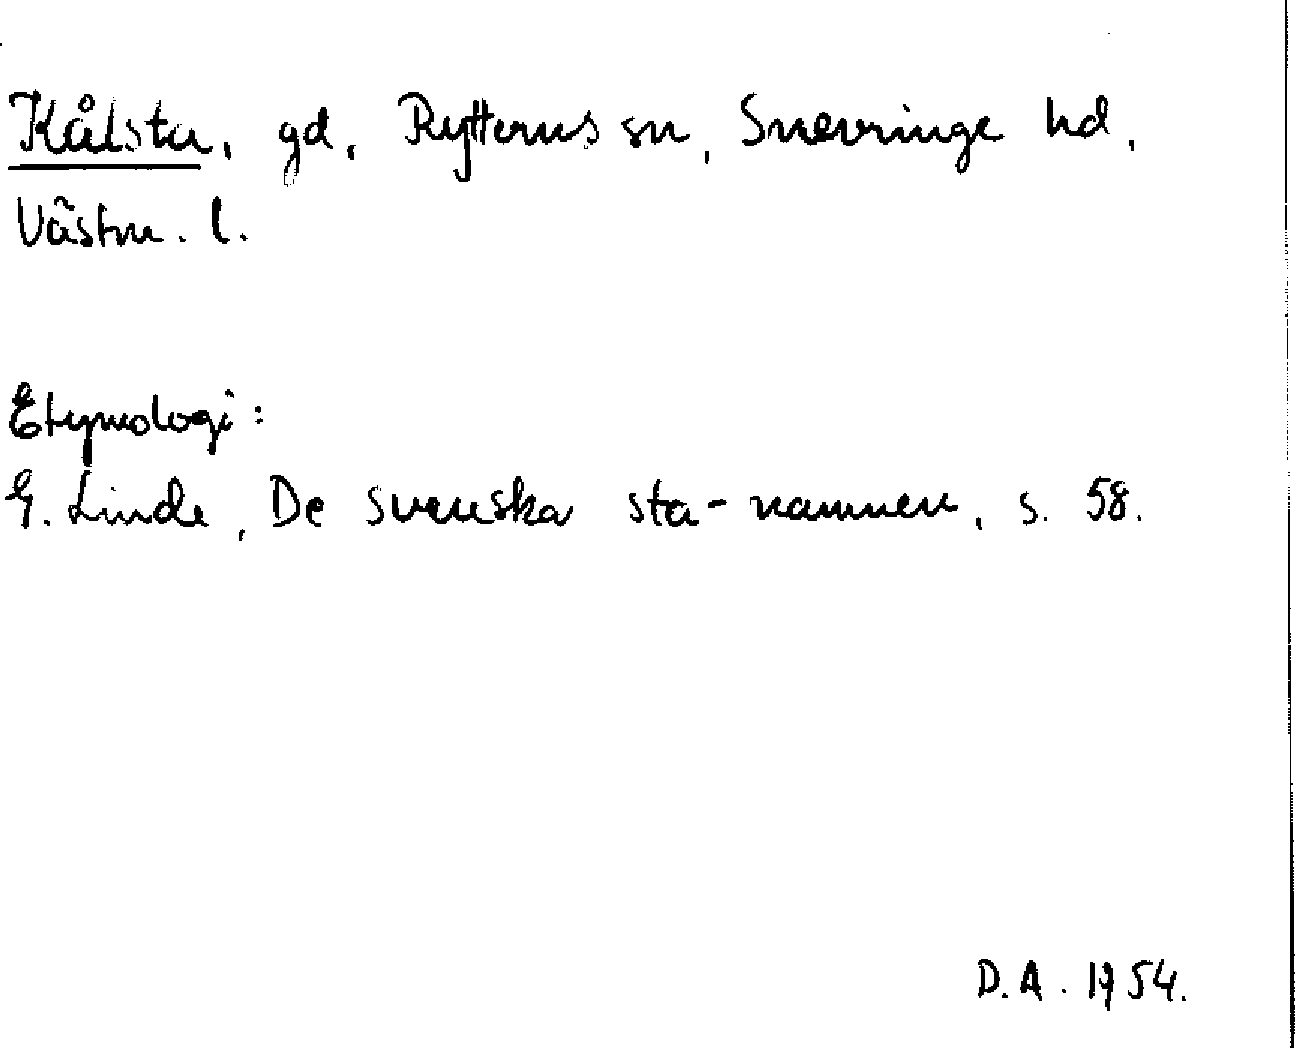 Kålsta, gd, Rytterns sn, Snevringe hd,
Västm. l.
Etymologi:
G. Linde, De svenska sta-namnen, s. 58.
D.A. 1954.